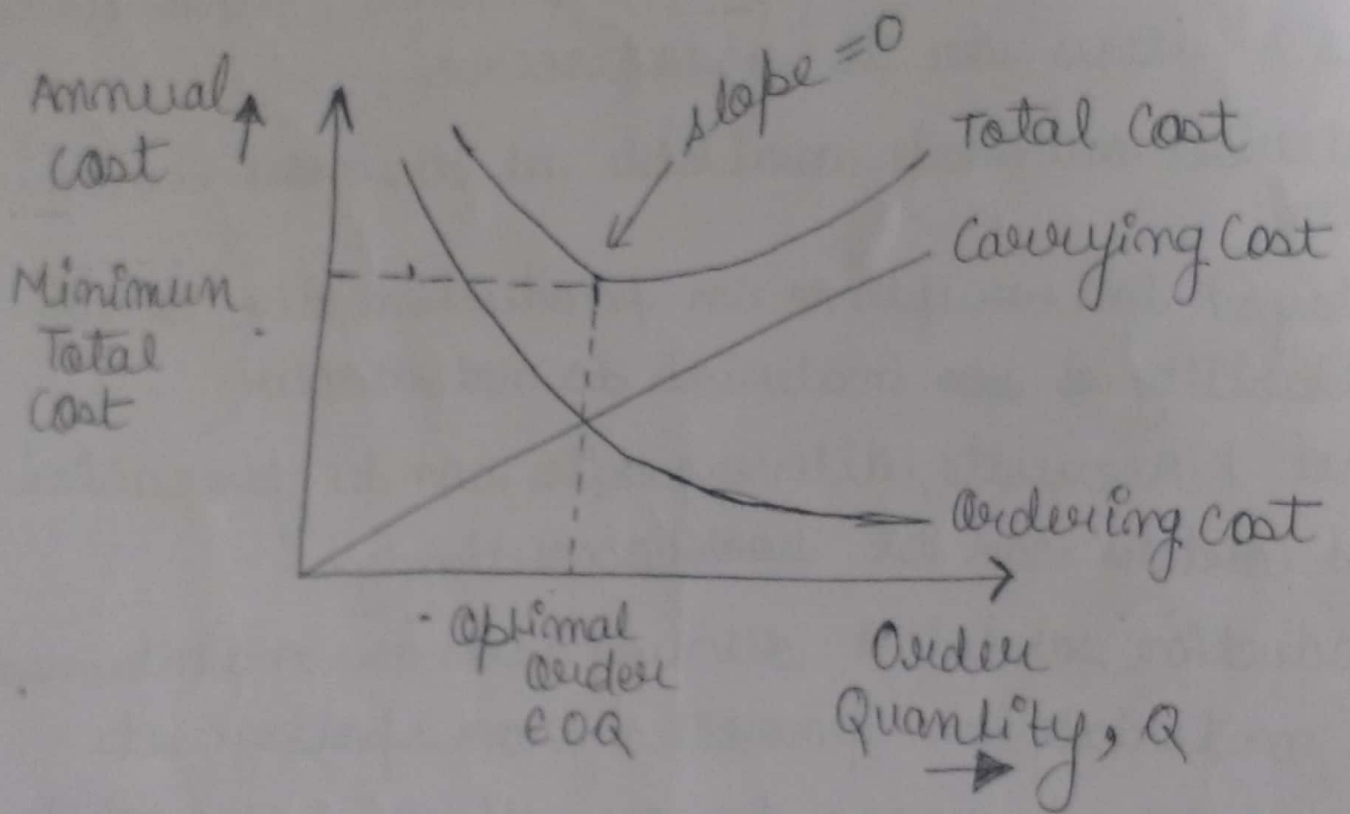 Annual
cost
slope = 0
Total Cost
Carrying Cost
Minimun
Total
Cost
Ordering cost
Optimal
order
EOQ
Order
Quantity, Q